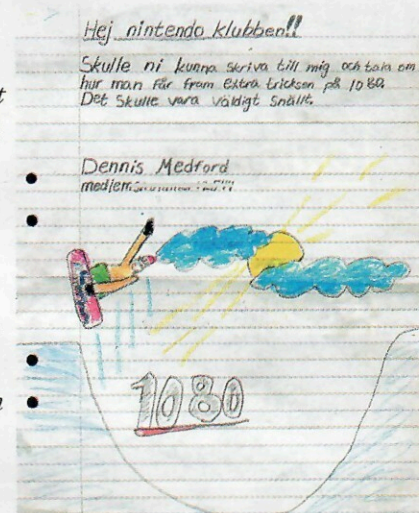 Hej nintendo klubben!!
Skulle ni kunna skriva till mig och tala om
hur man får fram extra tricksen på 1080.
Det skulle vara väldigt snällt.
Dennis Medford
1080